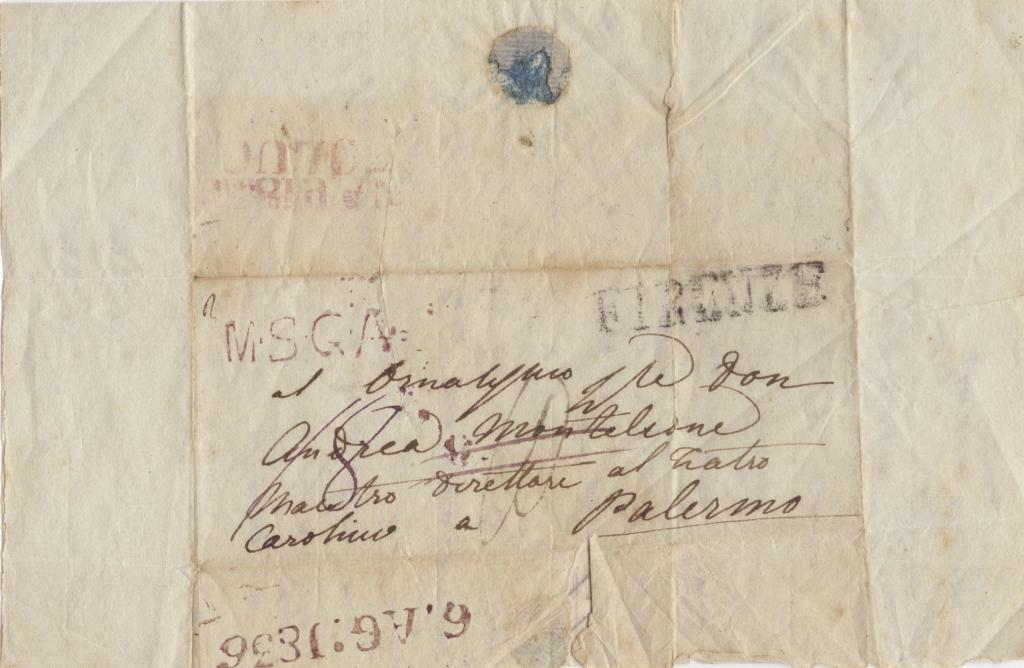 FIRENZE
M.S.G.A.
al Ornatissmo Sre Don
Andrea Monteleone
Maestro Direttore al Teatro
Carolino a Palermo
6. AG. 1836